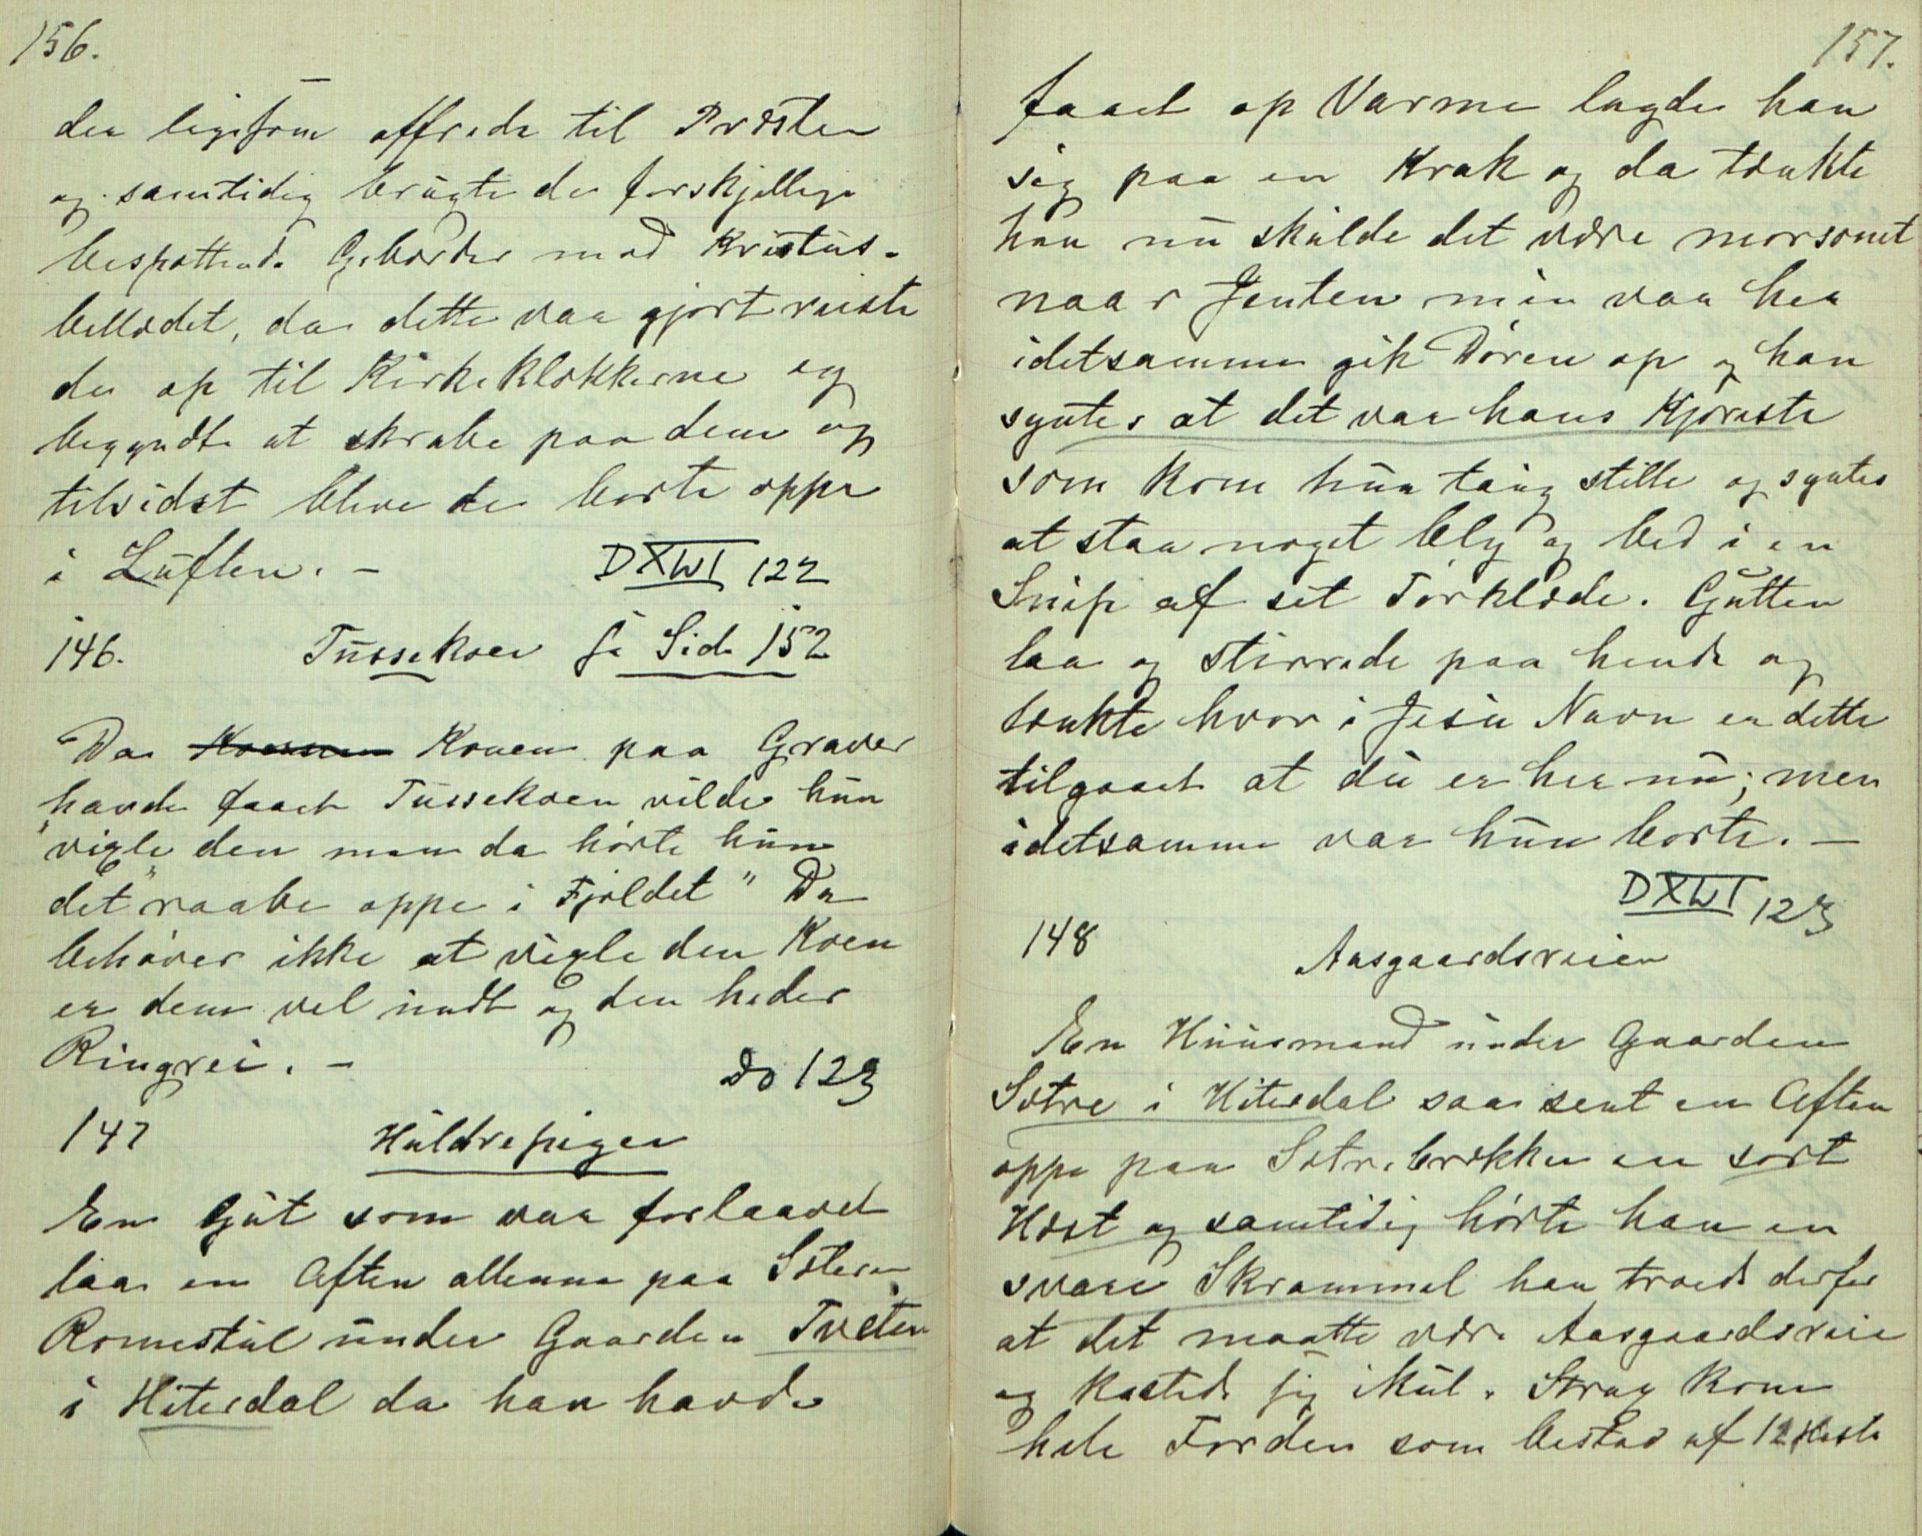 156.
der ligesom offrede til Præsten
og samtidig brugte de forskjellige
bespottende Geberder mod Kristus-
billedet, da dette var gjort reiste
de op til Kirkeklokkerne og
begyndte at skrabe paa dem og
tilsidst bleve de borte oppe
i Luften. –
DXLVI 122
146. Tussekoen jfr Side 152
Da Konen paa Graver
havde faaet Tussekoen vilde hun
"vigle" den men da hørte hun
det raabe oppe i Fjeldet "Du
behøver ikke at vigle den Koen
er den vel undt og den heder
Ringrei. –
Do 123
147 Huldrepigen
En Gut som var forlaavet
laa en Aften allene paa Sæteren
Romestul under Gaarden Tveten
i Hiterdal da han havde
157.
faaet op Varme lagde han
sig paa en Krak og da tænkte
han nu skulde det være morsomt
naar Jenten min var her
idetsamme gik Døren op og han
syntes at det var hans Kjæreste
som kom hun taug stille og syntes
at staa noget bly og bed i en
Snip af sit Tørklæde. Gutten
laa og stirrede paa hende og
tænkte hvor i Jesu Navn er dette
tilgaaet at du er her nu; men
idetsamme var hun borte. –
DXLVI 123
148
Aasgaardsreien
En Huusmand under Gaarden
Sætre i Hiterdal saa sent en Aften
oppe paa Sætrebrækken en sort
Hest og samtidig hørte han en
svær Skrammel han troede derfor
at det maatte være Aasgaardsreie
og kastede sig ikul. Strax kom
hele Færden som bestod af 12 Heste